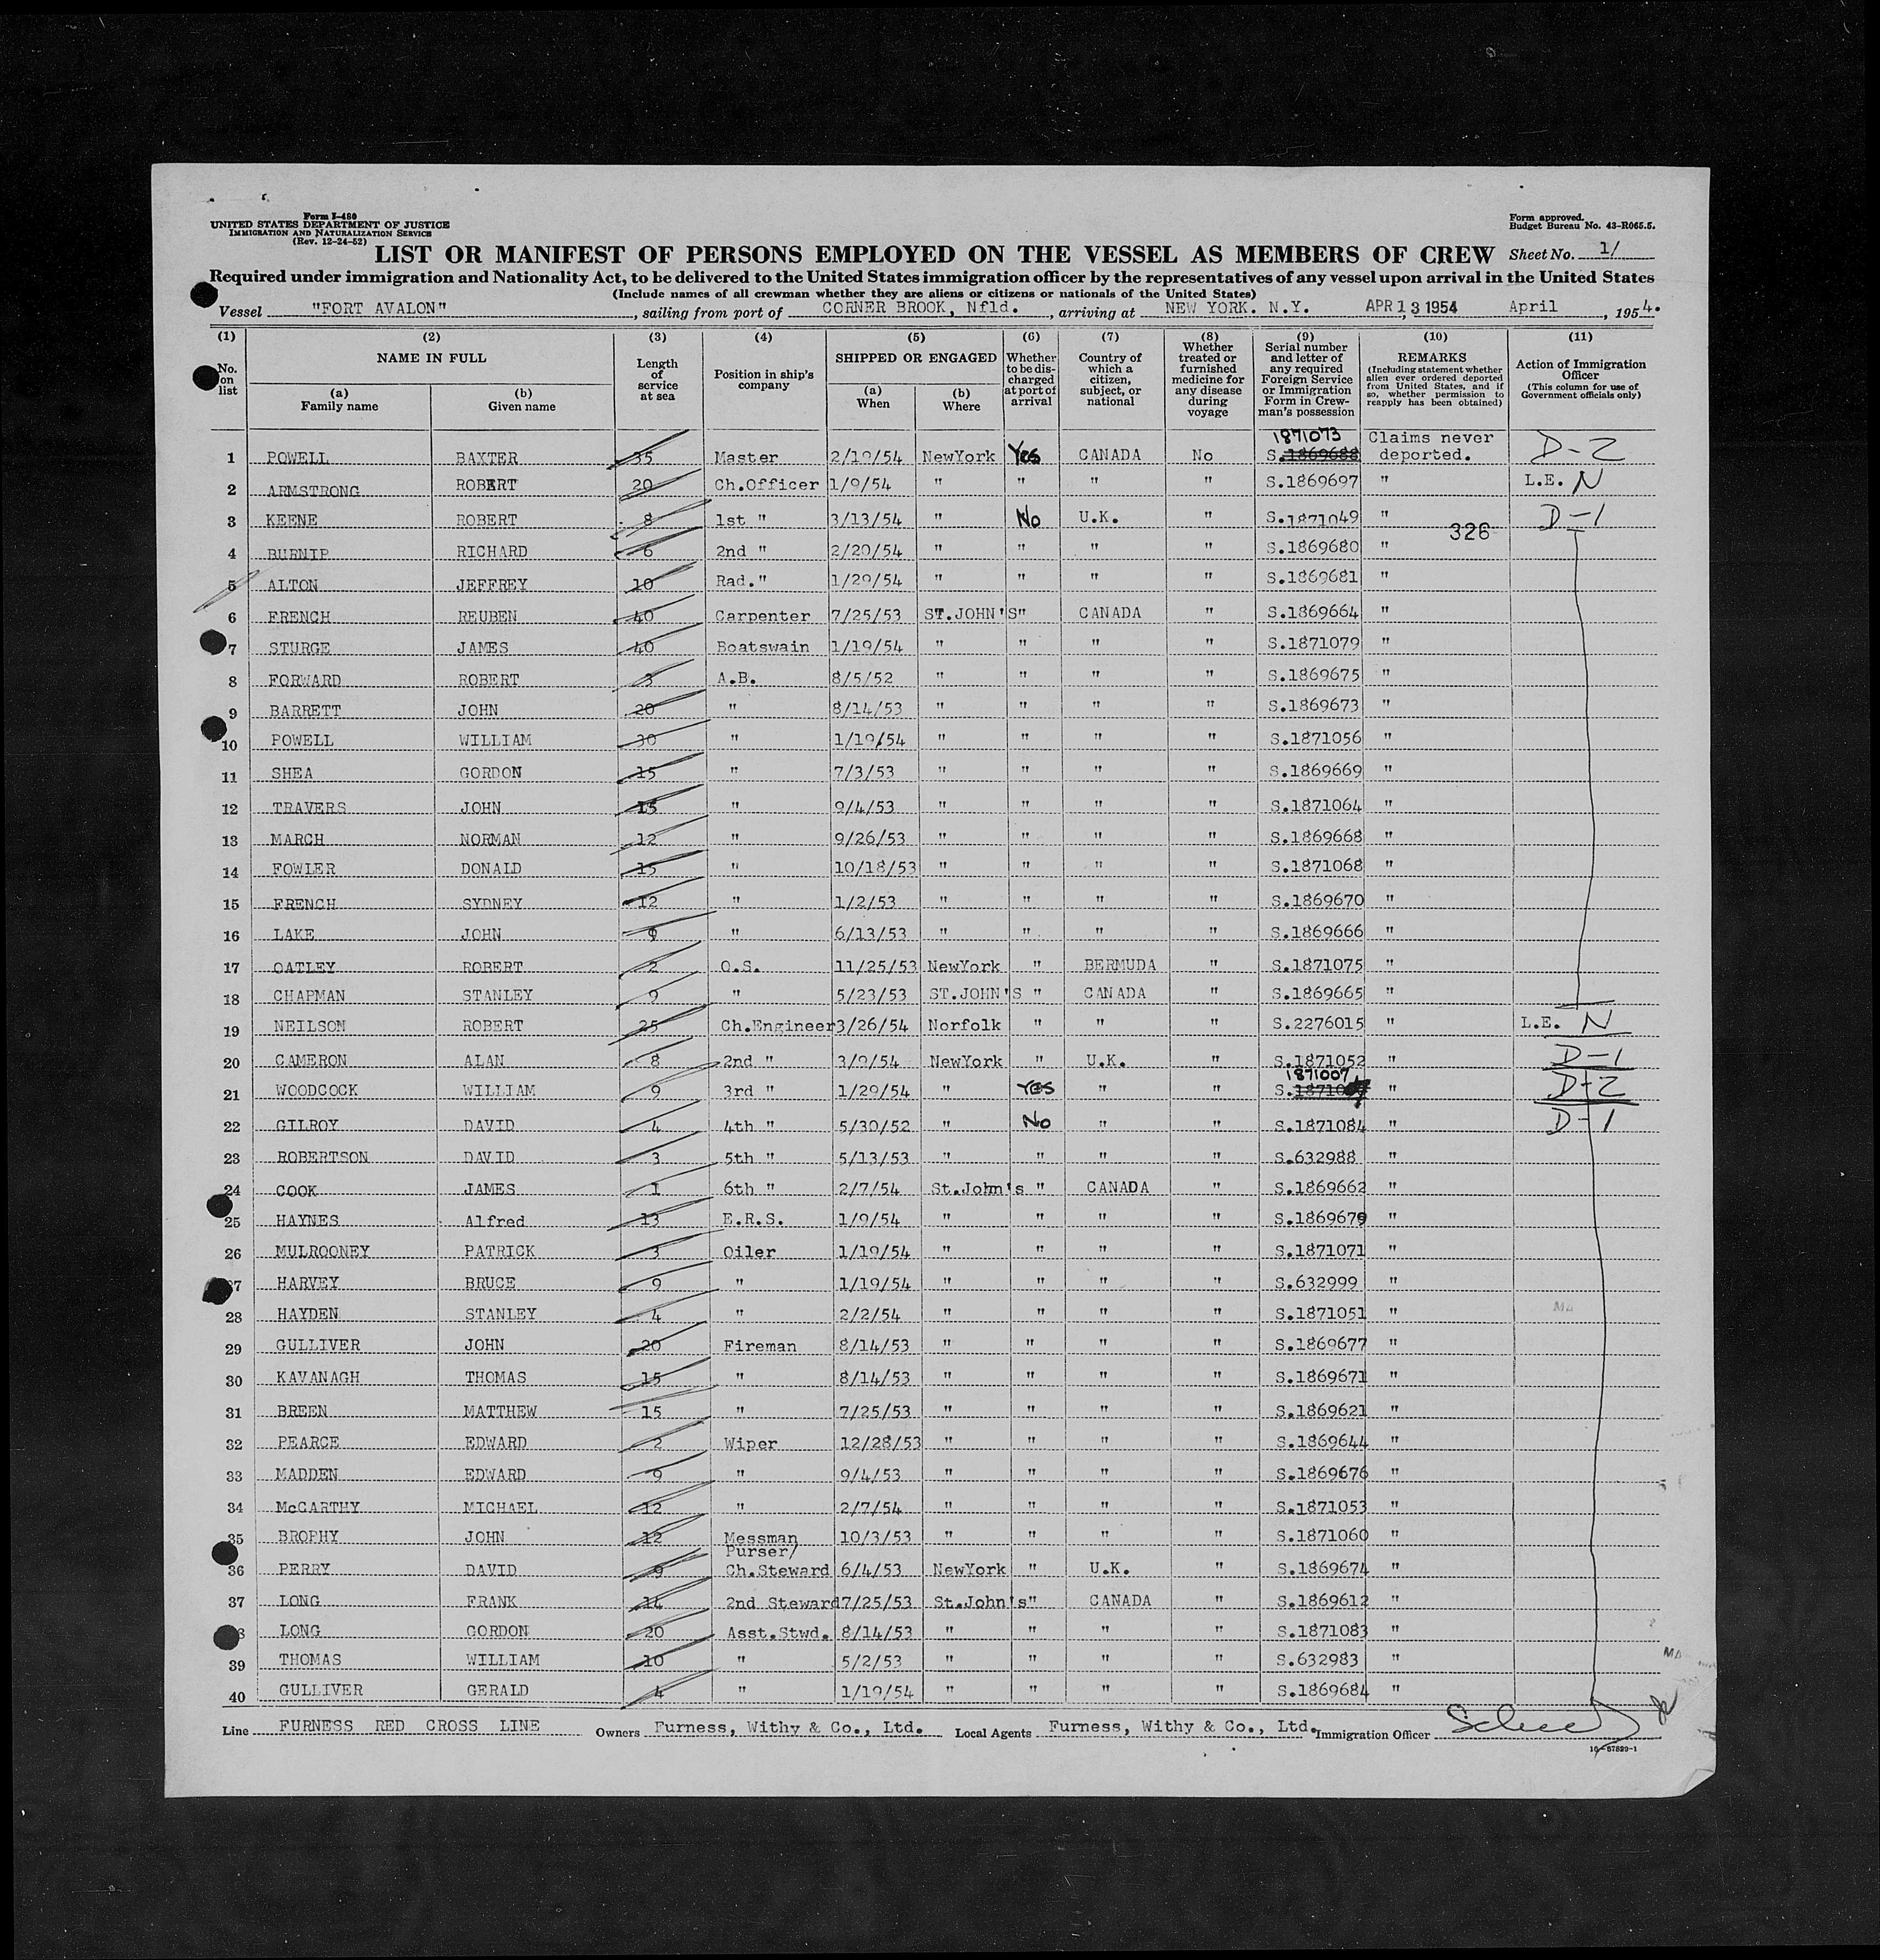 Form I-480
UNITED STATES DEPARTMENT OF JUSTICE
IMMIGRATION AND NATURALIZATION SERVICE
(Rev. 12-24-52)
Form approved.
Budget Bureau No. 43-R065.5.
LIST OR MANIFEST OF PERSONS EMPLOYED ON THE VESSEL AS MEMBERS OF CREW Sheet No. 1/
Required under immigration and Nationality Act, to be delivered to the United States immigration officer by the representatives of any vessel upon arrival in the United States
(Include names of all crewman whether they are aliens or citizens or nationals of the United States)
Vessel "FORT AVALON", sailing from port of CORNER BROOK, Nfld., arriving at NEW YORK. N.Y. APR 13 1954 April, 1954.
(1) (2) (3) (4) (5) (6) (7) (8) (9) (10) (11)
No. on list
NAME IN FULL
(a) Family name
(b) Given name
Length of service at sea
Position in ship's company
SHIPPED OR ENGAGED
(a) When
(b) Where
Whether to be discharged at port of arrival
Country of which a citizen, subject, or national
Whether treated or furnished medicine for any disease during voyage
Serial number and letter of any required Foreign Service or Immigration Form in Crewman's possession
REMARKS
(Including statement whether alien ever ordered deported from United States, and if so, whether permission to reapply has been obtained)
Action of Immigration Officer
(This column for use of Government officials only)
1871073 Claims never
1 POWELL BAXTER 35 Master 2/19/54 NewYork Yes CANADA No S.1869688 deported. D-2
2 ARMSTRONG ROBERT 20 Ch.Officer 1/9/54 " " " " S.1869697 " L.E. N
3 KEENE ROBERT 8 1st " 3/13/54 " No U.K. " S.1871049 " D-1
326
4 BURNIP RICHARD 6 2nd " 2/20/54 " " " " S.1869680 "
5 ALTON JEFFREY 10 Rad." 1/29/54 " " " " S.1869681 "
6 FRENCH REUBEN 40 Carpenter 7/25/53 ST.JOHN'S " CANADA " S.1869664 "
7 STURGE JAMES 40 Boatswain 1/19/54 " " " " S.1871079 "
8 FORWARD ROBERT 3 A.B. 8/5/52 " " " " S.1869675 "
9 BARRETT JOHN 20 " 8/14/53 " " " " S.1869673 "
10 POWELL WILLIAM 30 " 1/19/54 " " " " S.1871056 "
11 SHEA GORDON 15 " 7/3/53 " " " " S.1869669 "
12 TRAVERS JOHN 15 " 9/4/53 " " " " S.1871064 "
13 MARCH NORMAN 12 " 9/26/53 " " " " S.1869668 "
14 FOWLER DONALD 15 " 10/18/53 " " " " S.1871068 "
15 FRENCH SYDNEY 12 " 1/2/53 " " " " S.1869670 "
16 LAKE JOHN 9 " 6/13/53 " " " " S.1869666 "
17 OATLEY ROBERT 2 O.S. 11/25/53 NewYork " BERMUDA " S.1871075 "
18 CHAPMAN STANLEY 9 " 5/23/53 ST.JOHN'S " CANADA " S.1869665 "
19 NEILSON ROBERT 25 Ch.Engineer 3/26/54 Norfolk " " " S.2276015 " L.E. N
20 CAMERON ALAN 8 2nd " 3/9/54 NewYork " U.K. " S.1871052 " D-1
1871007
21 WOODCOCK WILLIAM 9 3rd " 1/29/54 " YES " " S. " D-2
22 GILROY DAVID 4 4th " 5/30/52 " No " " S.1871084 " D-1
23 ROBERTSON DAVID 3 5th " 5/13/53 " " " " S.632988 "
24 COOK JAMES 1 6th " 2/7/54 St.John's " CANADA " S.1869662 "
25 HAYNES Alfred 13 E.R.S. 1/9/54 " " " " S.1869679 "
26 MULROONEY PATRICK 3 Oiler 1/19/54 " " " " S.1871071 "
27 HARVEY BRUCE 9 " 1/19/54 " " " " S.632999 "
28 HAYDEN STANLEY 4 " 2/2/54 " " " " S.1871051 " MA
29 GULLIVER JOHN 20 Fireman 8/14/53 " " " " S.1869677 "
30 KAVANAGH THOMAS 15 " 8/14/53 " " " " S.1869671 "
31 BREEN MATTHEW 15 " 7/25/53 " " " " S.1869621 "
32 PEARCE EDWARD 2 Wiper 12/28/53 " " " " S.1869644 "
33 MADDEN EDWARD 9 " 9/4/53 " " " " S.1869676 "
34 McCARTHY MICHAEL 12 " 2/7/54 " " " " S.1871053 "
35 BROPHY JOHN 12 Messman 10/3/53 " " " " S.1871060 "
Purser/
36 PERRY DAVID 9 Ch.Steward 6/4/53 NewYork " U.K. " S.1869674 "
37 LONG FRANK 14 2nd Steward 7/25/53 St.John's " CANADA " S.1869612 "
38 LONG GORDON 20 Asst.Stwd. 8/14/53 " " " " S.1871083 "
39 THOMAS WILLIAM 10 " 5/2/53 " " " " S.632983 " MA
40 GULLIVER GERALD 4 " 1/19/54 " " " " S.1869684 "
Line FURNESS RED CROSS LINE Owners Furness, Withy & Co., Ltd. Local Agents Furness, Withy & Co., Ltd. Immigration Officer
16-67829-1